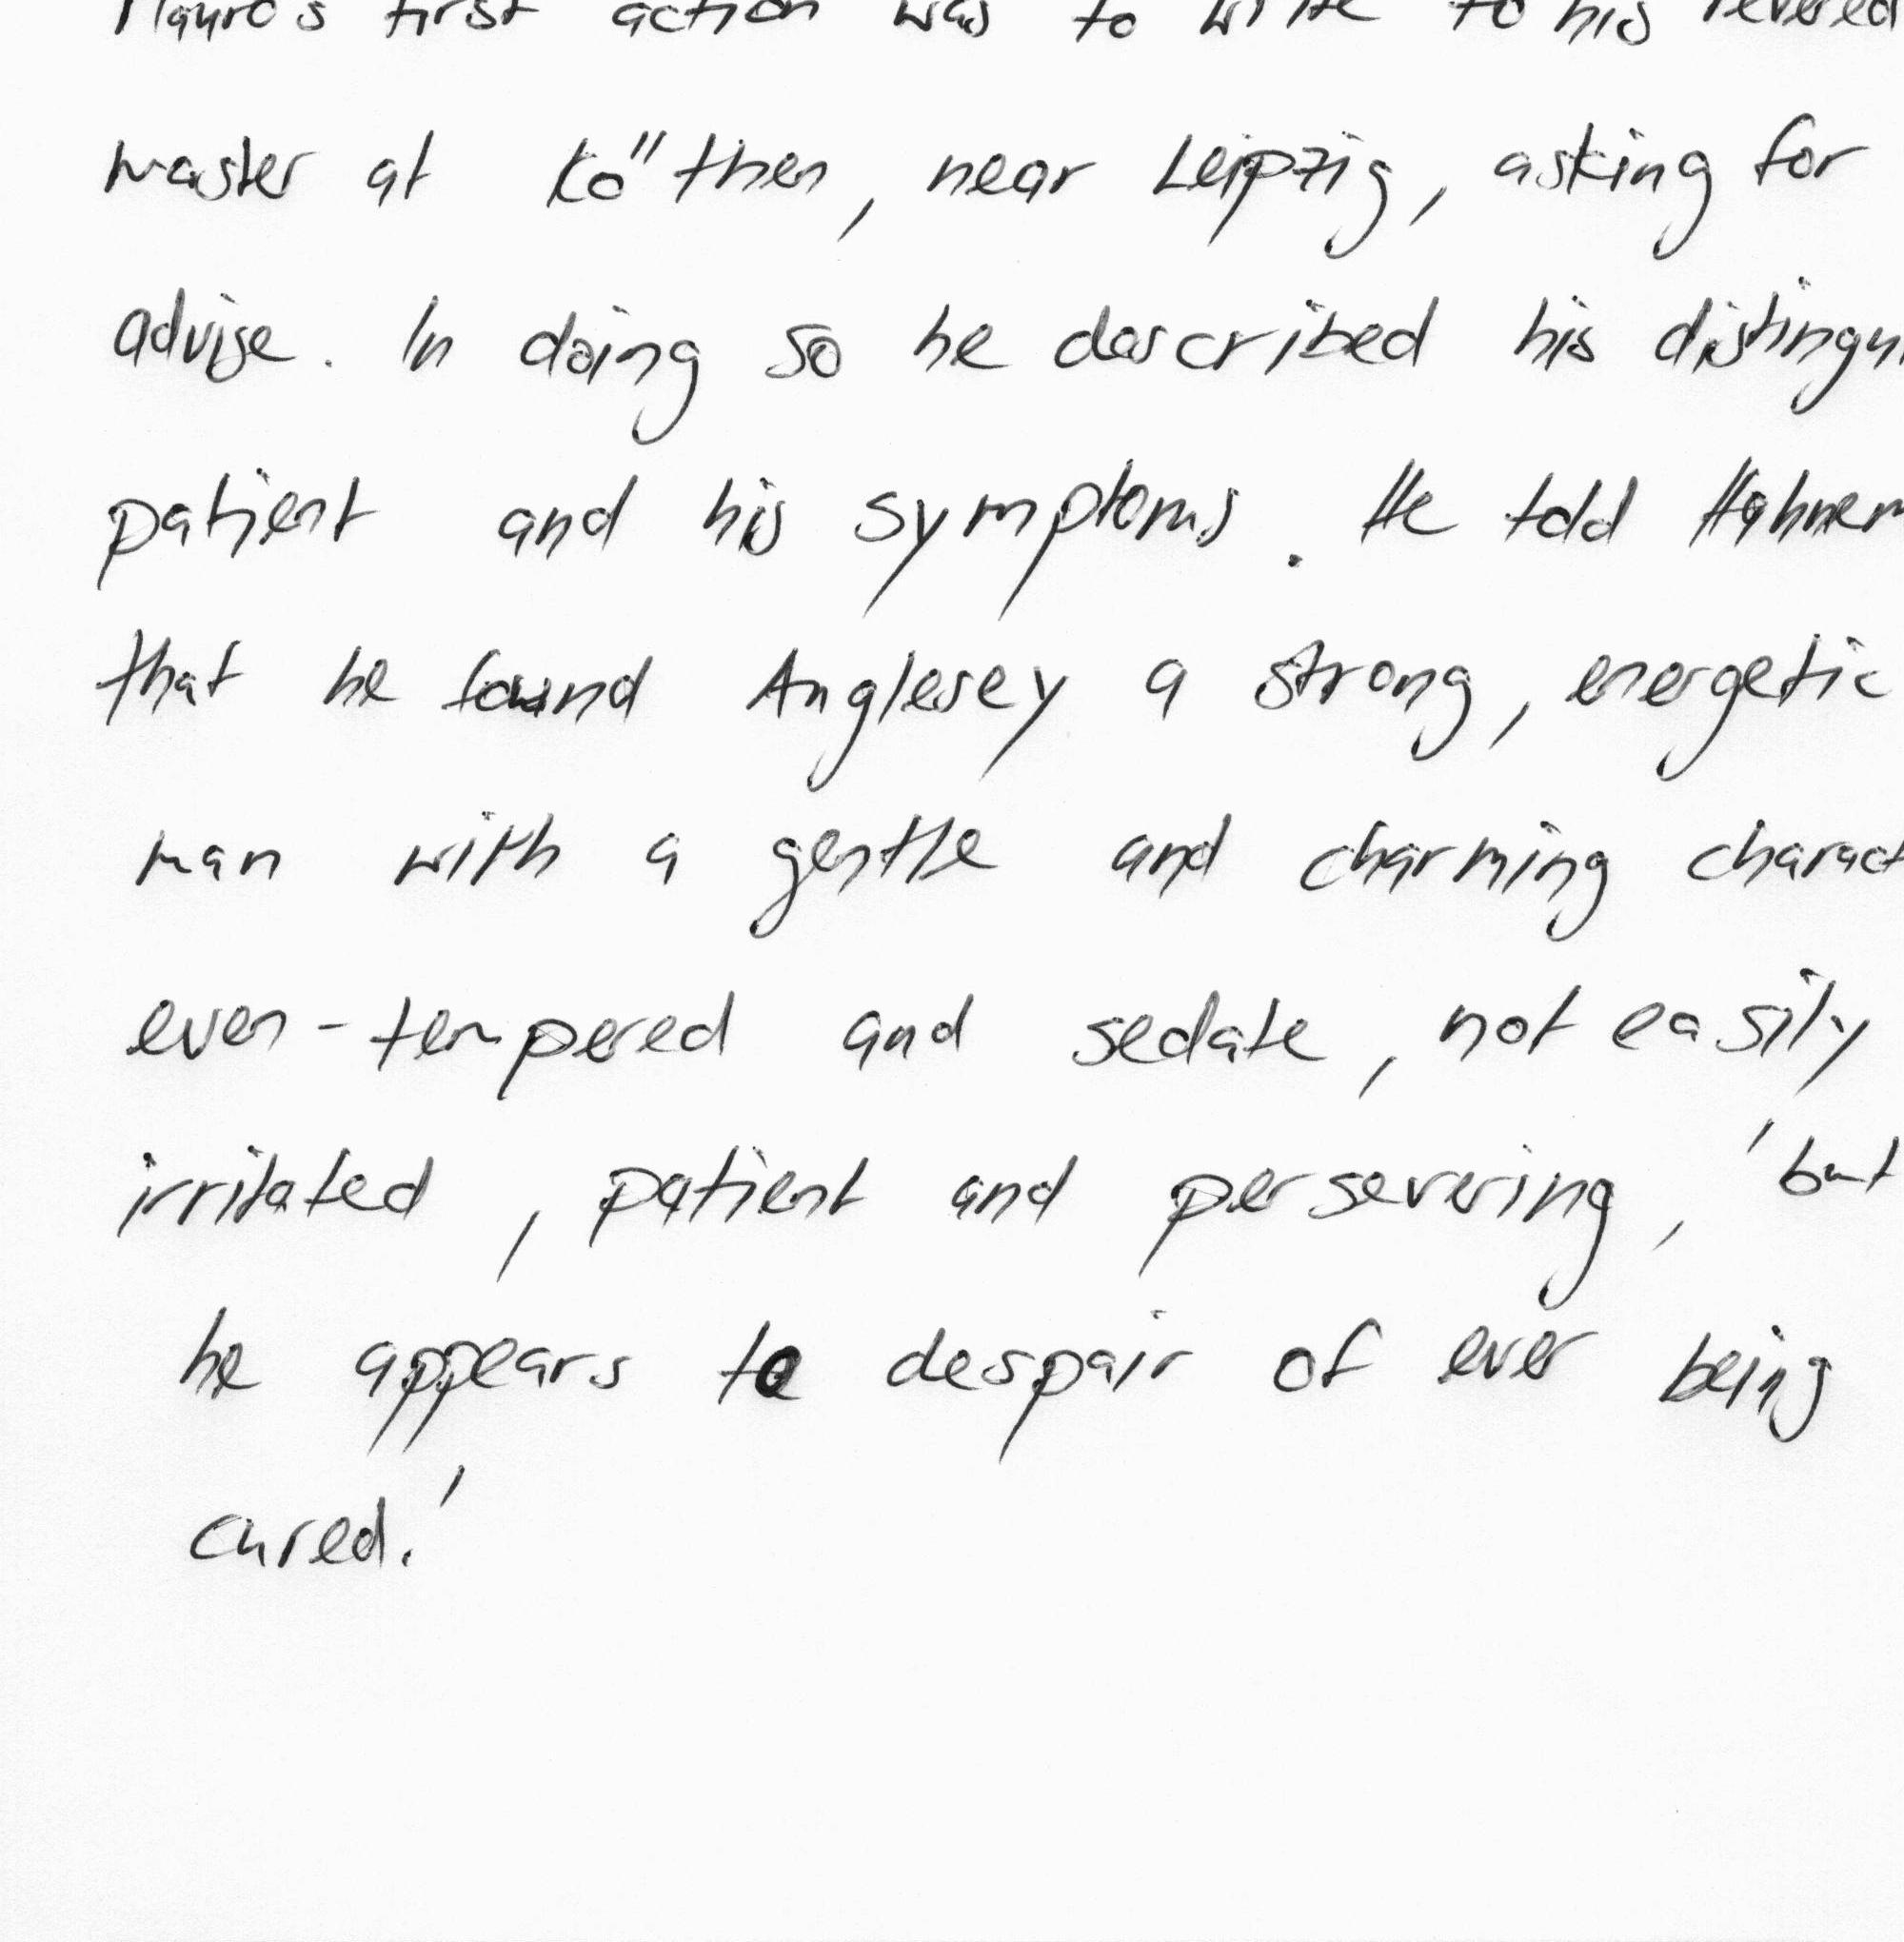 Mauro's first action was to write to his revered
master at Kö"then, near Leipzig, asking for
advise. In doing so he described his distingui
patient and his symptoms. He told Hahnem
that he found Anglesey a strong, energetic
man with a gentle and charming charact
even-tempered and sedate, not easily
irritated, patient and persevering, 'but
he appears to despair of ever being
cured.'